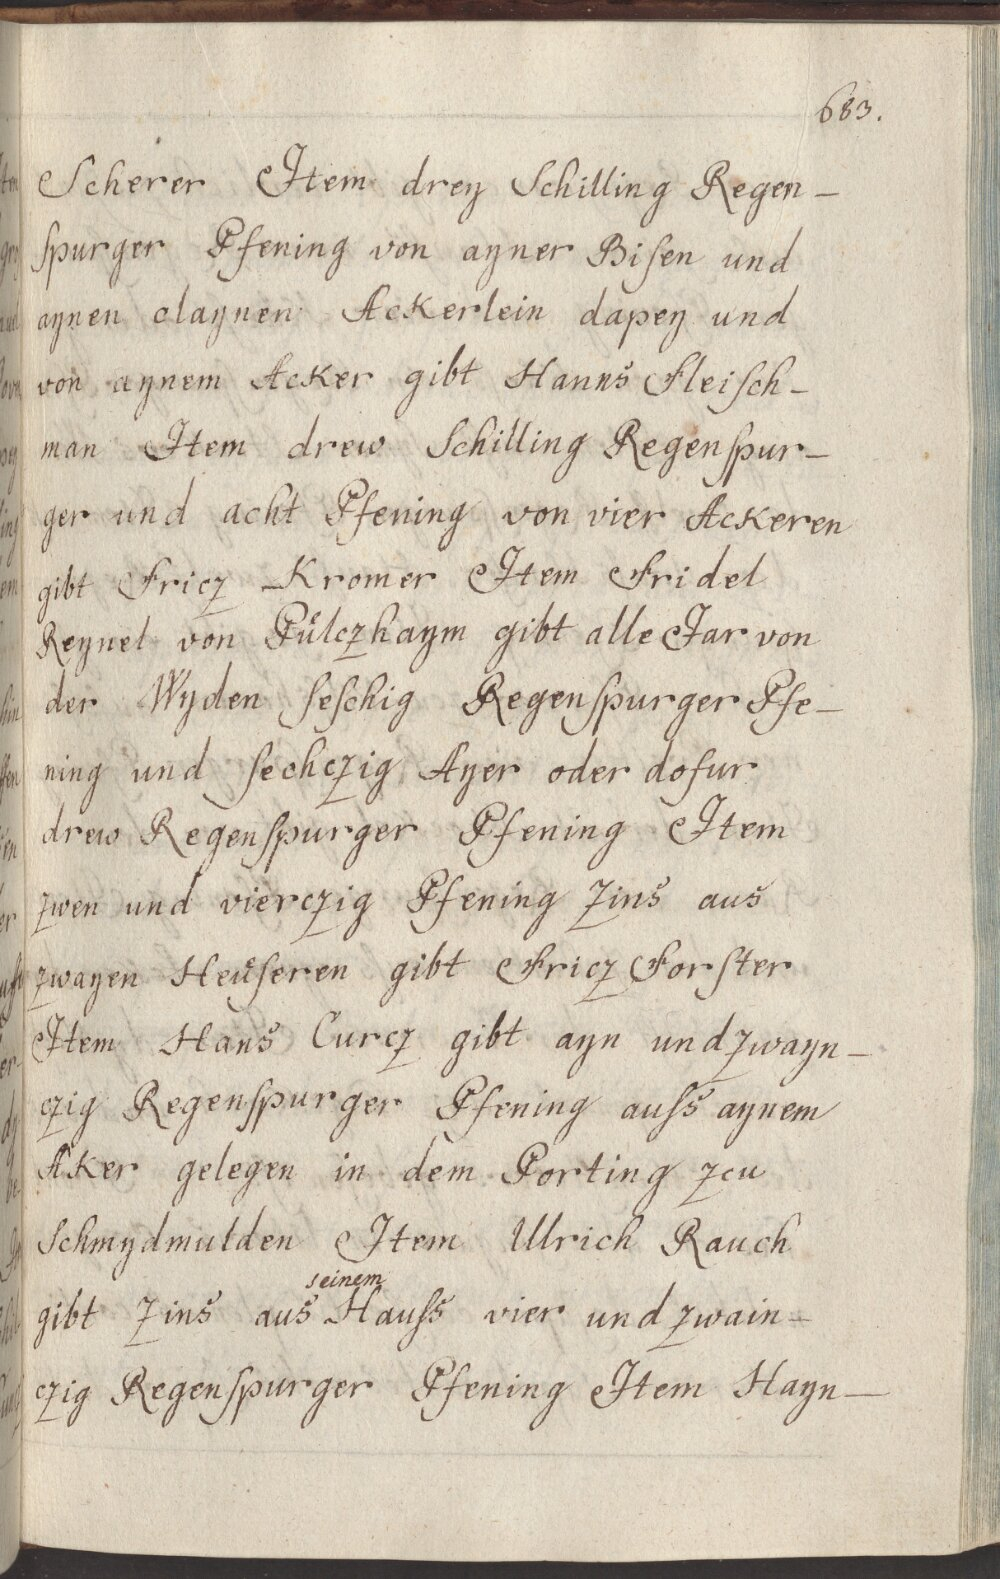 683.
Scherer Item dreÿ Schilling Regen-
spurger Pfening von aÿner Bisen und
aÿnen claÿnen Ackerlein dapeÿ und
von aÿnem Acker gibt Hanns Fleisch-
man Item drew Schilling Regenspur-
ger und acht Pfening von vier Ackeren
gibt Fricz Kromer Item Fridel
Reÿnel von Pülczhaÿm gibt alle Jar von
der Wÿden seschig Regenspurger Pfe-
ning und sechczig Aÿer oder dofur
drew Regenspurger Pfening Item
zwen und vierczig Pfening zins aus
zwaÿen Heüseren gibt Fricz Forster
Item Hans Curcz gibt aÿn und zwaÿn-
czig Regenspurger Pfening auss aÿnem
Aker gelegen in dem Porting zcu
Schmÿdmulden Item Ulrich Rauch
gibt zins aus seinem Hauss vier und zwain-
czig Regenspurger Pfening Item Haÿn-